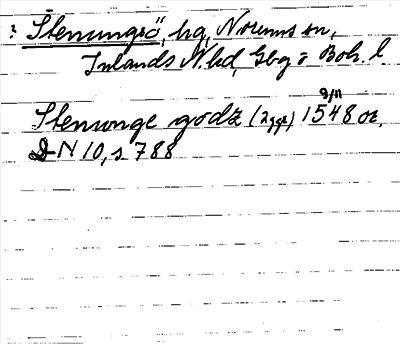 : Stenungsö, hg, Norums sn,
Inlands N. hd, Gbg o Boh. l.
9/11
Stenunge godz (2 ggr) 1548 or.
DN 10, s. 788